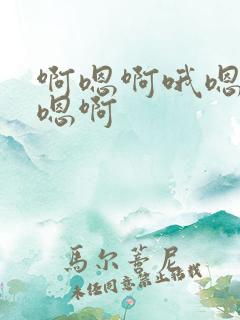 啊嗯啊哦嗯
嗯啊
马尔蒂尼
未经同意禁止转载